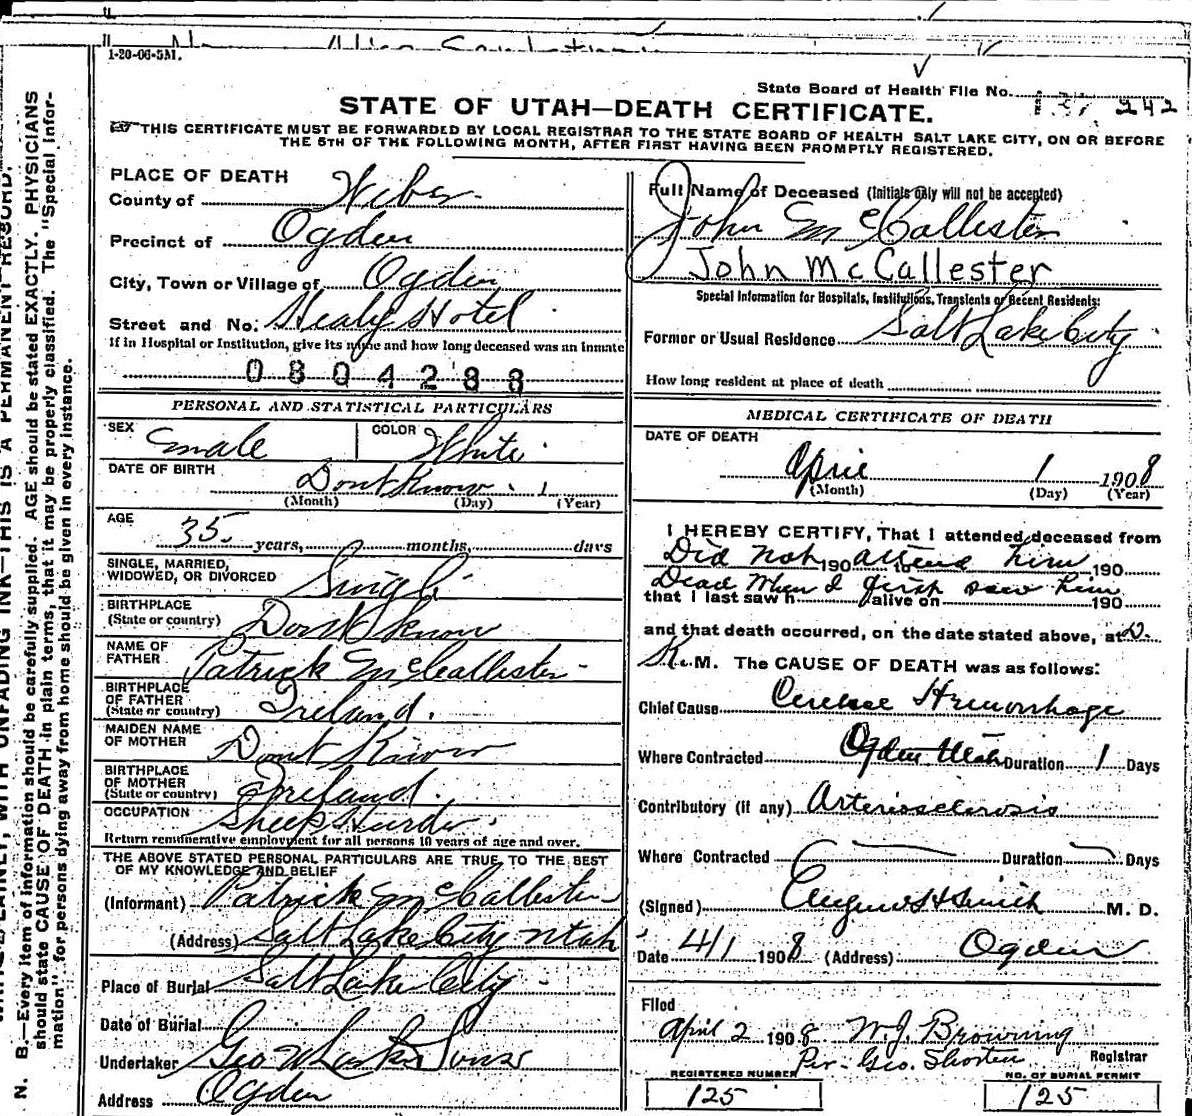 1-20-06-5M.
State Board of Health File No. 242
STATE OF UTAH—DEATH CERTIFICATE.
THIS CERTIFICATE MUST BE FORWARDED BY LOCAL REGISTRAR TO THE STATE BOARD OF HEALTH SALT LAKE CITY, ON OR BEFORE
THE 5TH OF THE FOLLOWING MONTH, AFTER FIRST HAVING BEEN PROMPTLY REGISTERED.
N. B.—Every item of information should be carefully supplied. AGE should be stated EXACTLY. PHYSICIANS
should state CAUSE OF DEATH in plain terms, that it may be properly classified. The "Special Infor-
mation" for persons dying away from home should be given in every instance.
PLACE OF DEATH
County of Weber
Precinct of Ogden
City, Town or Village of Ogden
Street and No. Healy Hotel
If in Hospital or Institution, give its name and how long deceased was an inmate
0804288
PERSONAL AND STATISTICAL PARTICULARS
SEX male COLOR White
DATE OF BIRTH Dont Know 1
(Month) (Day) (Year)
AGE
35 years, months, days
SINGLE, MARRIED,
WIDOWED, OR DIVORCED Single
BIRTHPLACE
(State or country) Dont Know
NAME OF
FATHER Patrick McCallister
BIRTHPLACE
OF FATHER
(State or country) Ireland.
MAIDEN NAME
OF MOTHER Dont Know
BIRTHPLACE
OF MOTHER
(State or country) Ireland.
OCCUPATION Sheep Herder
Return remunerative employment for all persons 10 years of age and over.
THE ABOVE STATED PERSONAL PARTICULARS ARE TRUE TO THE BEST
OF MY KNOWLEDGE AND BELIEF
(Informant) Patrick McCallister
(Address) Salt Lake City Utah
Place of Burial Salt Lake City
Date of Burial
Undertaker Geo W Larkin Sons
Address Ogden
Full Name of Deceased (Initials only will not be accepted)
John McCallister
John McCallester
Special Information for Hospitals, Institutions, Transients or Recent Residents:
Former or Usual Residence Salt Lake City
How long resident at place of death
MEDICAL CERTIFICATE OF DEATH
DATE OF DEATH
April 1 1908
(Month) (Day) (Year)
I HEREBY CERTIFY, That I attended deceased from
Did not 190 attend him 190
Dead When I first saw him
that I last saw h alive on 190
and that death occurred, on the date stated above, at D.
K. M. The CAUSE OF DEATH was as follows:
Chief Cause Hemorrhage
Where Contracted Ogden Utah Duration 1 Days
Contributory (if any) Arteriosclerosis
Where Contracted Duration Days
(Signed) M. D.
Date 4/1 1908 (Address) Ogden
Filed
April 2 1908 W. J. Browning
Per- Geo. Shorten Registrar
REGISTERED NUMBER NO. OF BURIAL PERMIT
125 125